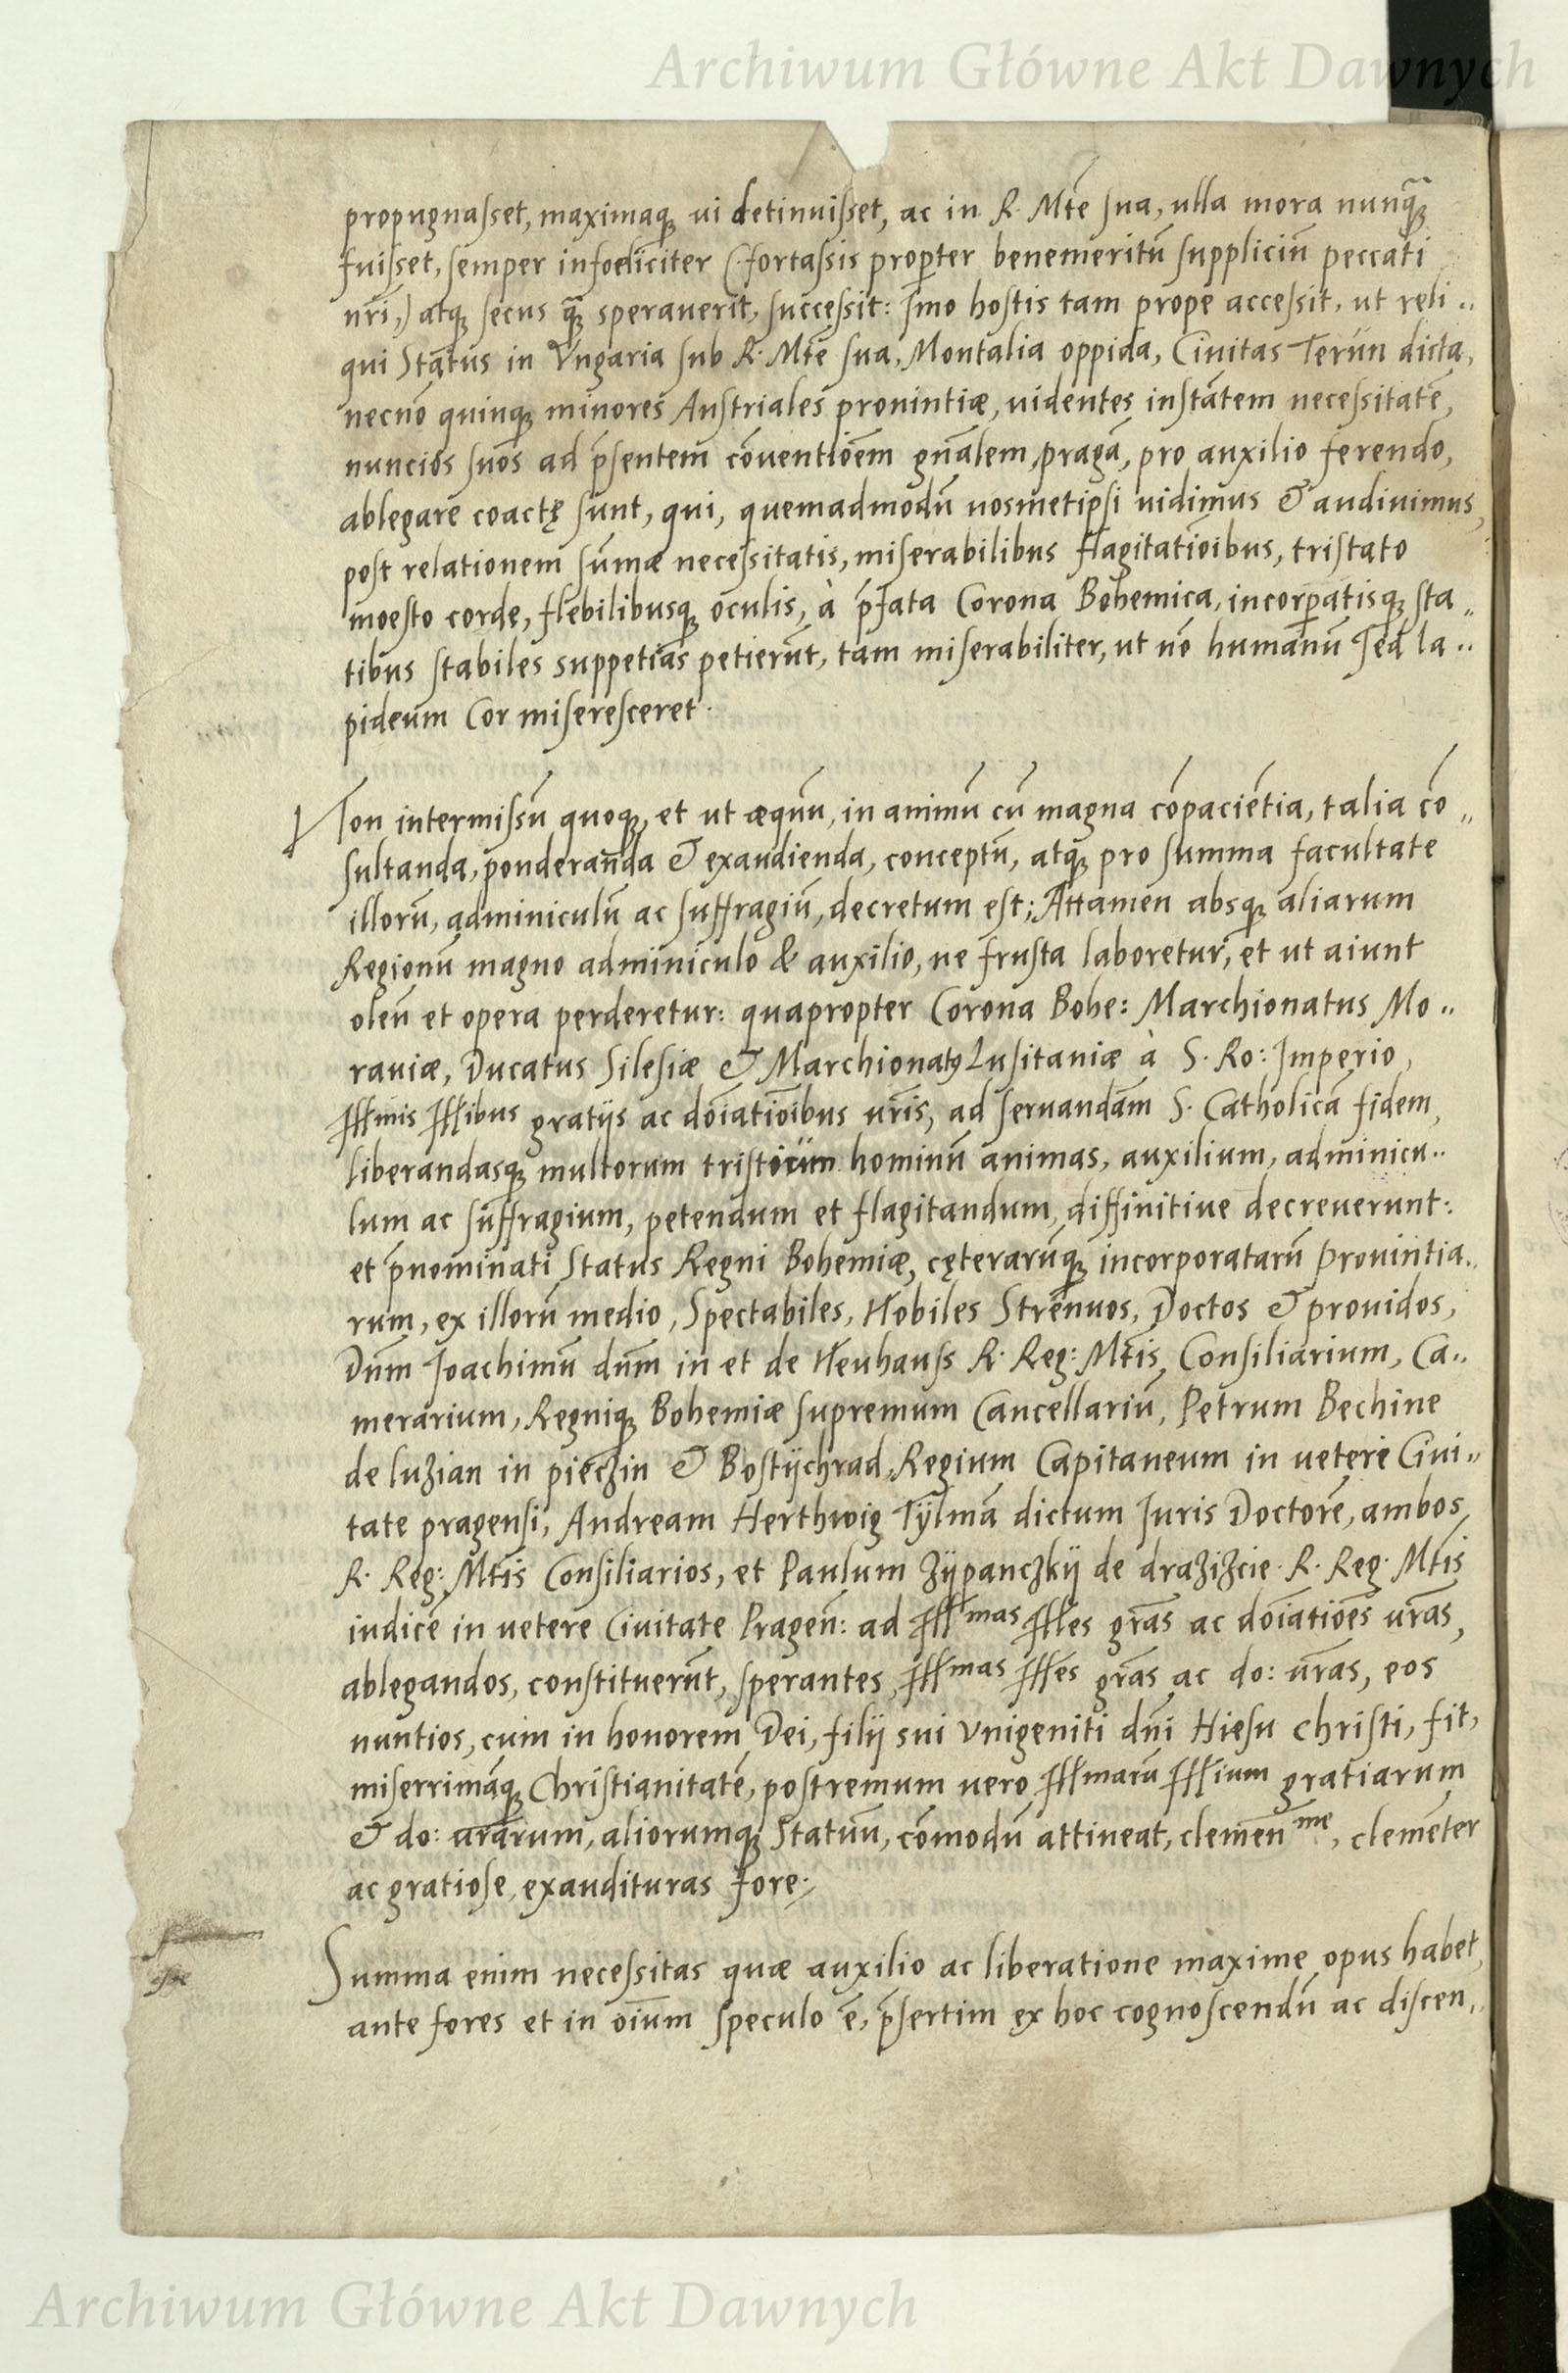 Archiwum Główne Akt Dawnych
propugnasset, maximaq; ui detinuisset, ac in R. Mte sua, ulla mora nunq̄
fuisset, semper infoeliciter (fortassis propter benemeritū suppliciū peccati
nri,) atq; secus q̄ sperauerit, successit: Imo hostis tam prope accessit, ut reli..
qui Status in Vngaria sub R. Mte sua, Montalia oppida, Ciuitas Terün dicta,
necnō quinq; minores Austriales prouintiæ, uidentes instātem necessitatē,
nuncios suos ad p̄sentem cōuentiōem gn̄alem, pragā, pro auxilio ferendo,
ablegare coactę sunt, qui, quemadmodū nosmetipsi uidimus & audiuimus,
post relationem sūmæ necessitatis, miserabilibus flagitatiōibus, tristato
moesto corde, flebilibusq; oculis, à p̄fata Corona Bohemica, incorp̄atisq; sta..
tibus stabiles suppetias petierūt, tam miserabiliter, ut nō humanū sed la..
pideum Cor miseresceret.
Non intermissū quoq;, et ut æquū, in animū cū magna cōpaciētia, talia cō..
sultanda, ponderanda & exaudienda, conceptū, atq; pro summa facultate
illorū, adminiculū ac suffragiū, decretum est; Attamen absq; aliarum
Regionū magno adminiculo & auxilio, ne frusta laboretur, et ut aiunt
oleū et opera perderetur: quapropter Corona Bohe: Marchionatus Mo..
rauiæ, Ducatus Silesiæ & Marchionatq Lusitaniæ à S. Ro: Imperio,
Illmis Illibus gratijs ac doīatiōibus uris, ad seruandam S. Catholicā fidem,
liberandasq; multorum tristicum hominū animas, auxilium, adminicu..
lum ac suffragium, petendum et flagitandum, diffinitiue decreuerunt:
et p̄nominati Status Regni Bohemiæ, cęterarūq; incorporatarū Prouintia..
rum, ex illorū medio, Spectabiles, Nobiles Strēnuos, Doctos & prouidos,
Dnm Joachimū dnm in et de Neuhauss R. Reg: Mtis Consiliarium, Ca..
merarium, Regniq; Bohemiæ supremum Cancellariū, Petrum Bechine
de luzian in pieczin & Bostÿchrad, Regium Capitaneum in uetere Ciui..
tate pragensi, Andream Herthwig Tÿlmā dictum Iuris Doctorē, ambos
R. Reg: Mtis Consiliarios, et Paulum Zÿpanczkÿ de drazizcie R. Reg. Mtis
iudicē in uetere Ciuitate Pragen̄: ad Illmas Illes gras ac doīatiōes uras,
ablegandos, constituerūt, sperantes, Illmas Illes gras ac do: uras, eos
nuntios, cum in honorem Dei, filij sui Vnigeniti dni Hiesu christi, fit,
miserrimāq; Christianitatē, postremum uero Illmarū Illium gratiarum
& do: urarum, aliorumq; Statuū, cōmodū attineat, clemen̄me, clemēter
ac gratiose, exaudituras fore:
Summa enim necessitas quæ auxilio ac liberatione maxime opus habet,
ante fores et in oīum speculo ē, p̄sertim ex hoc cognoscendū ac discen..
Archiwum Główne Akt Dawnych